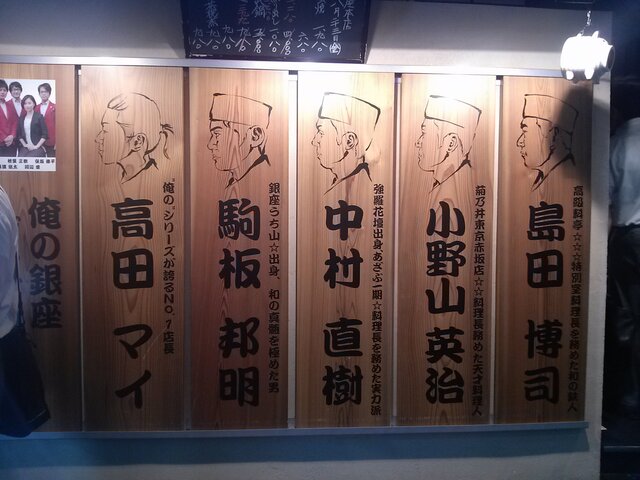 島田 博司
高級料亭☆☆☆特別室料理長を務めた和の鉄人
小野山 英治
菊乃井東京赤坂店☆☆料理長務めた天才料理人
中村 直樹
強羅花壇出身、あざぶ一期☆料理長を務めた実力派
駒板 邦明
銀座うち山☆出身、和の真髄を極めた男
高田 マイ
“俺の”シリーズが誇るNo.1店長
俺の銀座